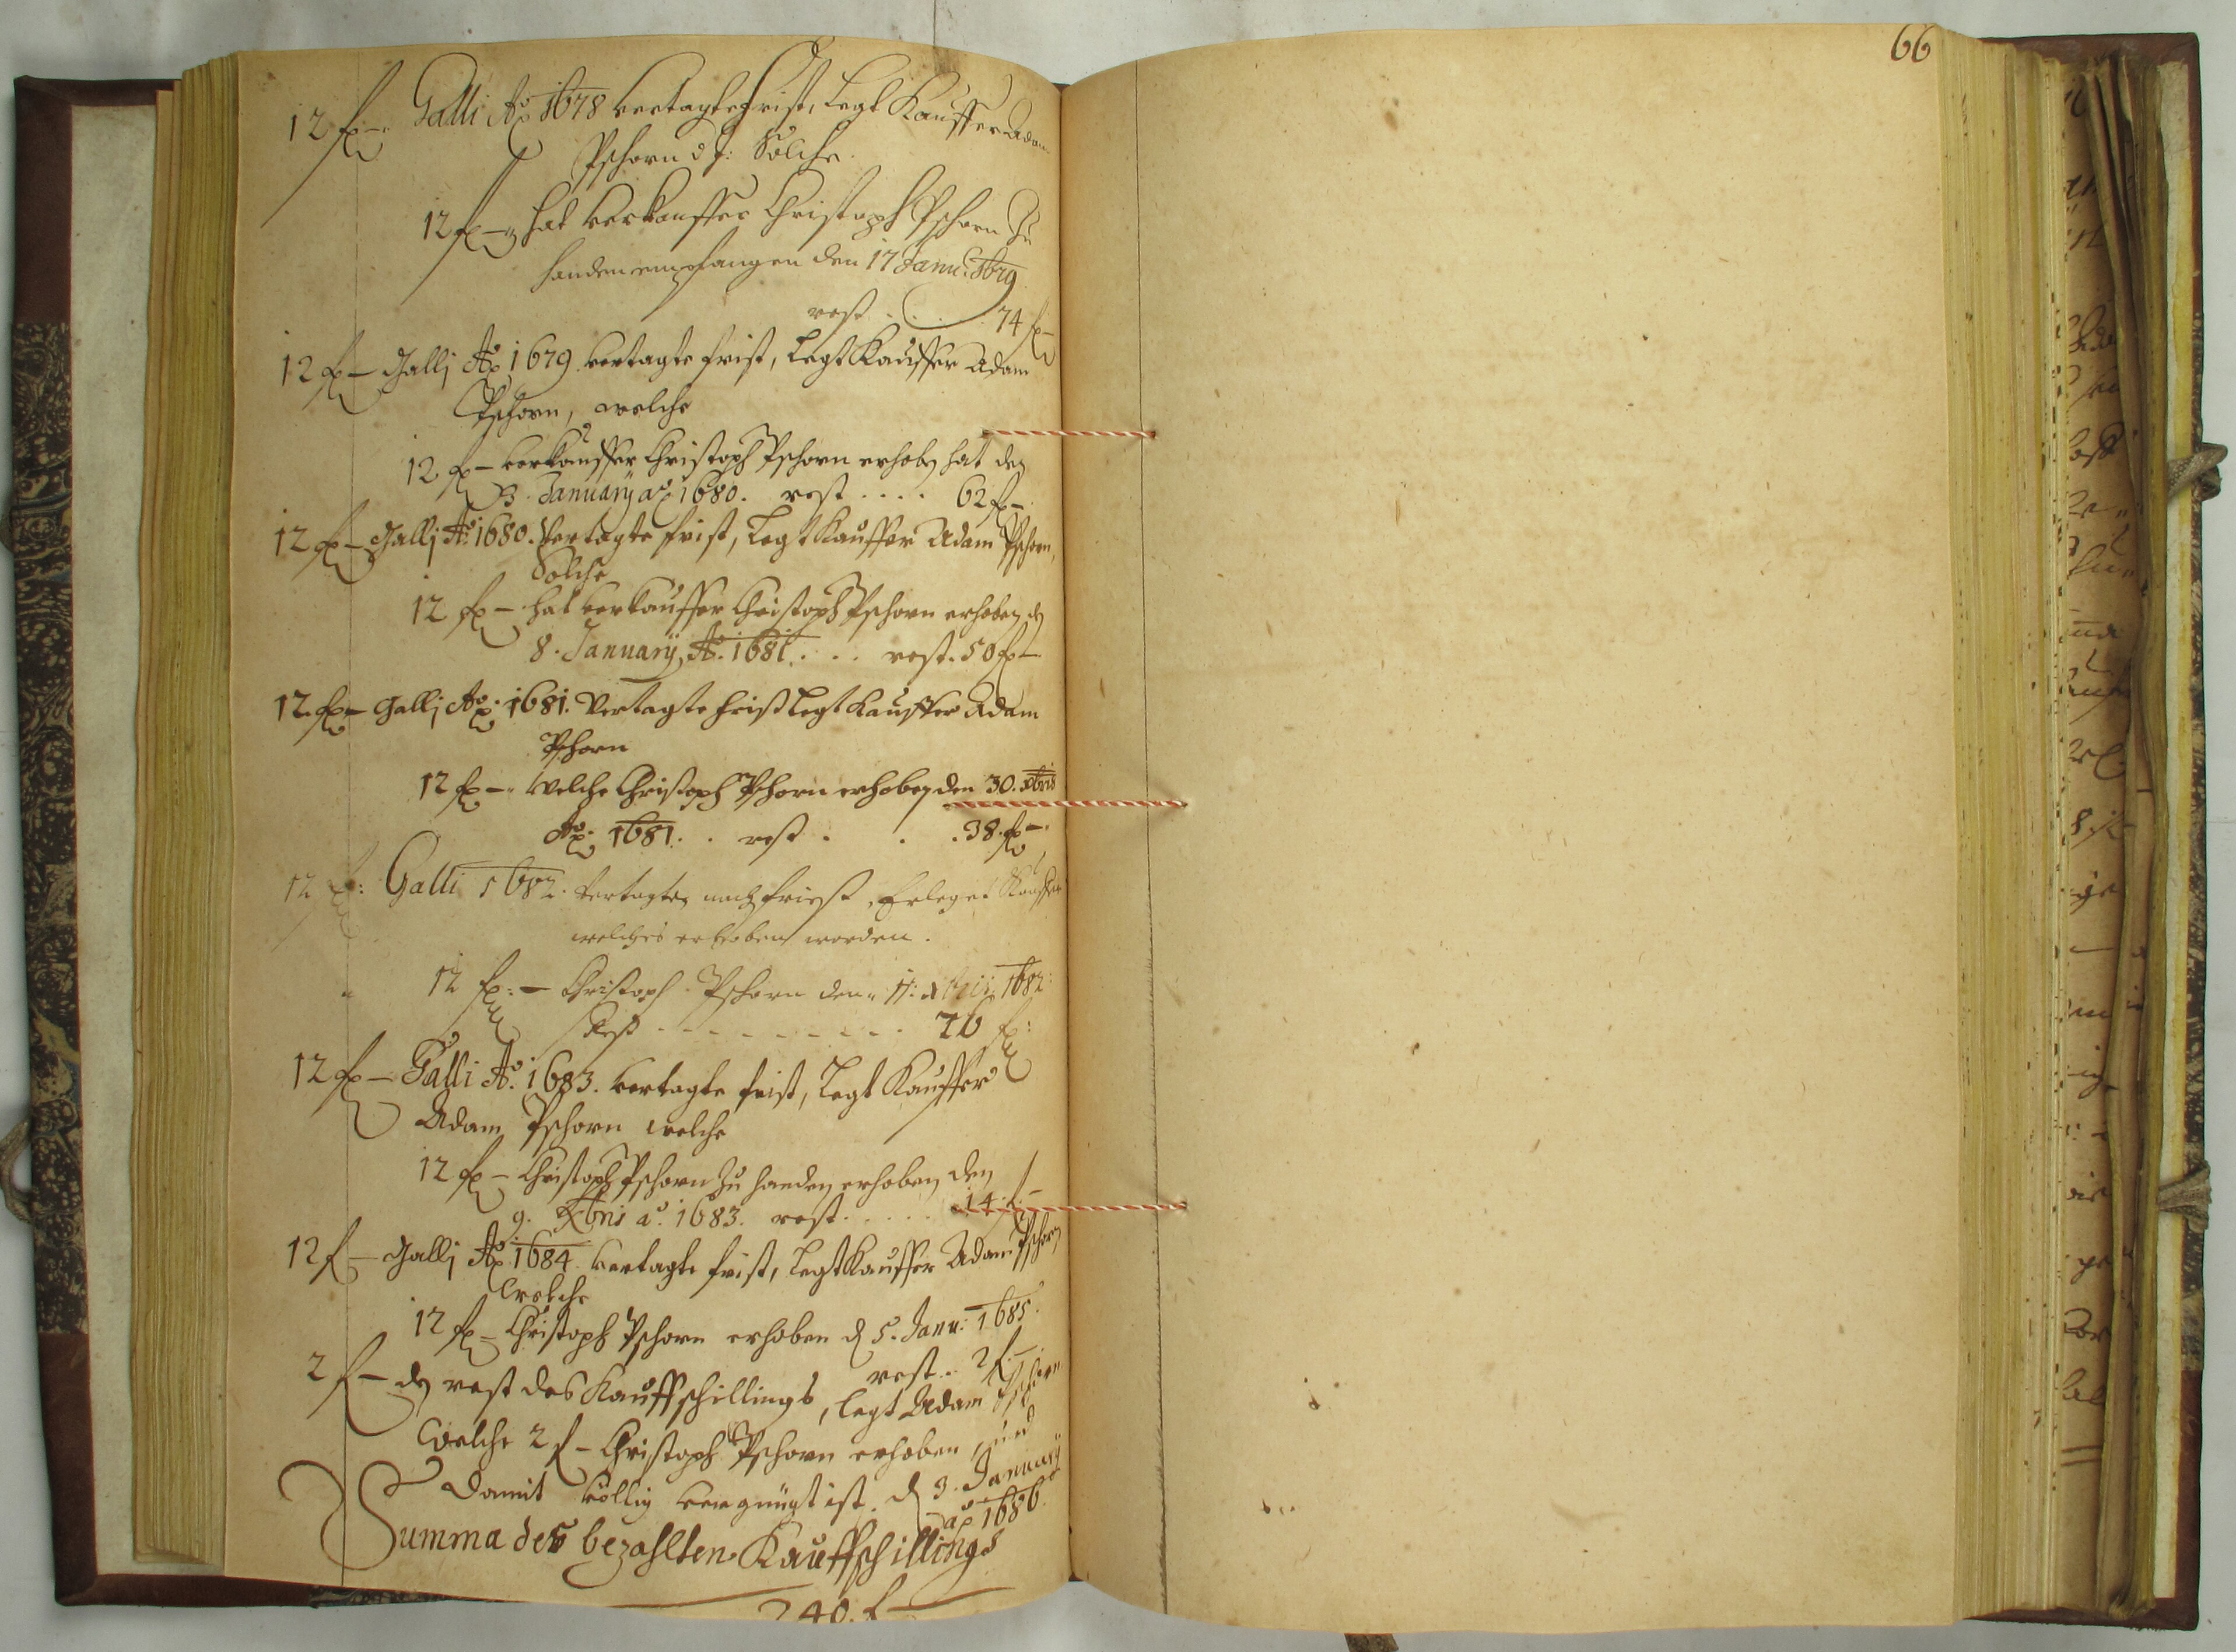 66
12 f – Galli Ao 1678 vertagte frist, legt Kauffer Adam
Pschorn d J: Solche
12 f – hat verkauffer Christoph Pschorn Zu
handen empfangen den 17 Janu: 1679
rest . . . 74 f –
12 f – Gallj Ao 1679. vertagte frist, legt Kauffer Adam
Pschorn, welche
12 f – verkauffer Christoph Pschorn erhoben hat den
Januarÿ ao 1680. rest . . . . 62 f –
12 f – Gallj Ao 1680. Vertagte frist, legt Kauffer Adam Pschorn,
Solche
12 f – hat verkauffer Christoph Pschorn erhoben d
8. Januarÿ Ao. 1681 . . . rest. 50 f –
12 f – Gallj Ao: 1681. Vertagte frist legt Kauffer Adam
Pschorn
12 f – Welche Christoph Pschorn erhoben den 30. xbris
Ao. 1681. . rest . . . 38. f –
12 f: Galli 1682. vertagte frist, Erleget Kauffer
welches erhoben worden.
12 f: – Christoph Pschorn den 1682:
Rest - - - - - - - 26 f:
12 f – Galli Ao. 1683. vertagte frist, legt Kauffer
Adam Pschorn welche
12 f – Christoph Pschorn Zu handen erhoben den
9. Xbris ao. 1683. rest . . . . . 14 f –
12 f – Gallj Ao 1684. vertagte frist, legt Kauffer Adam Pschorn
Welche
12 f – Christoph Pschorn erhoben d 5. Janu: 1685.
rest . . 2 f. –
2 f – den rest des Kauffschillings, legt Adam Pschorn
Welche 2 f – Christoph Pschorn erhoben, und
damit völlig vergnügt ist. d 3. Januarÿ
ao 1686.
Summa des bezahlten Kauffschillings
240. f –